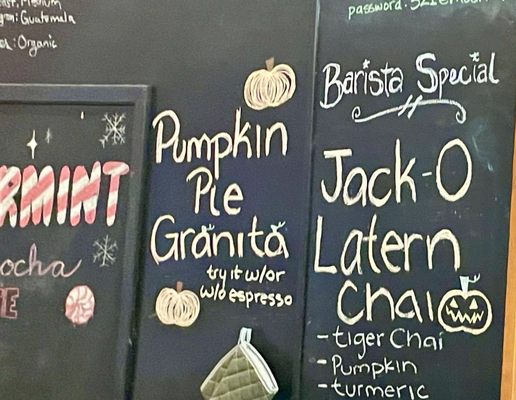 Medium
: Guatemala
: Organic
RMINT
ocha
Pumpkin
Pie
Grănită
try it w/or
w/o espresso
password:
Barista Special
Jack-O
Latern
Chai
- tiger Chai
- Pumpkin
- turmeric